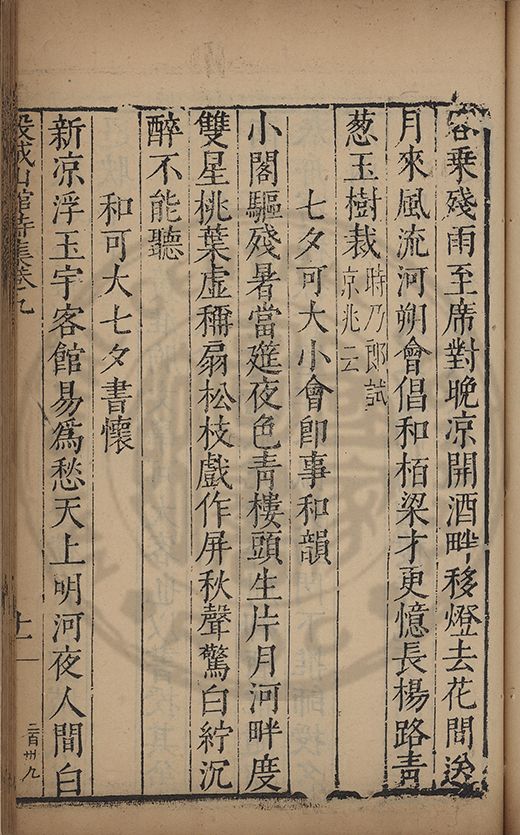 客乗殘雨至席對晚凉開酒畔移燈去花間送
月來風流河朔會倡和栢梁才更憶長楊路青
葱玉樹裁時乃郎試
京兆云
七夕可大小會卽事和韻
小閣驅殘暑當筵夜色青樓頭生片月河畔度
雙星桃葉虛稱扇松枝戲作屏秋聲驚白紵沉
醉不能聽
和可大七夕書懷
新凉浮玉宇客館易爲愁天上明河夜人間白
穀城山館詩集卷九
十一
二百卅九